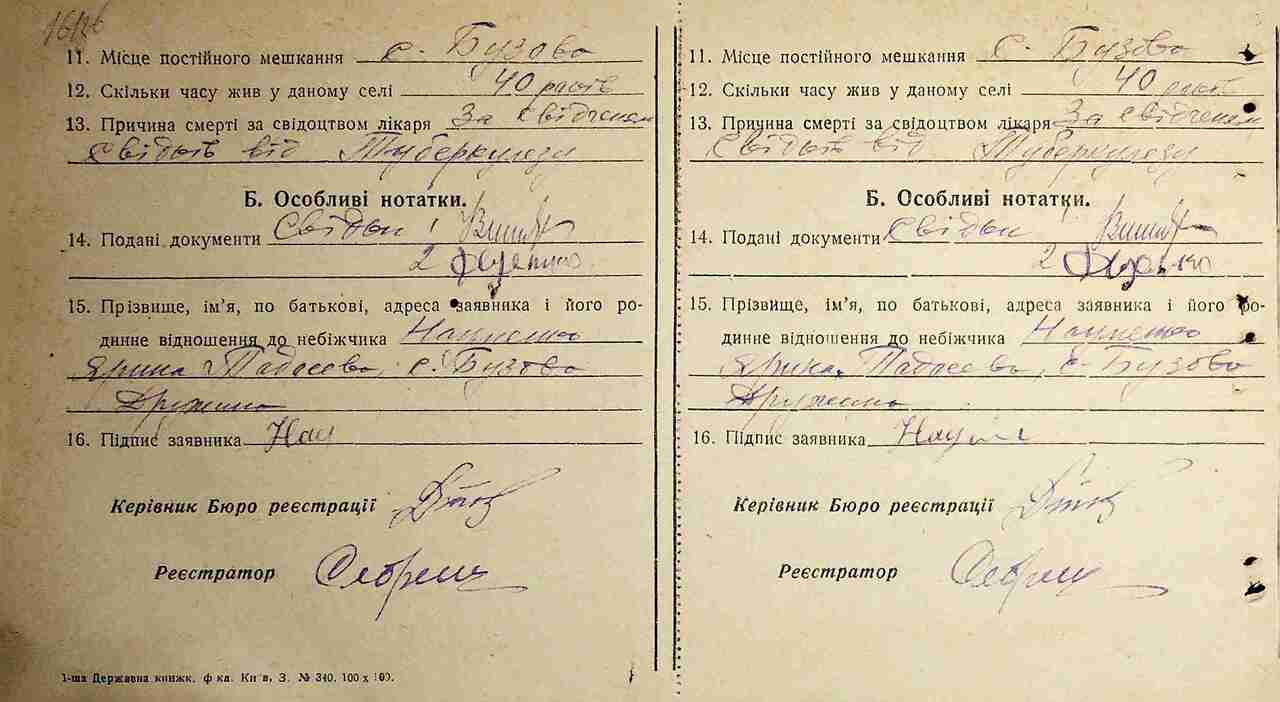 11. Місце постійного мешкання с. Бузова
12. Скільки часу жив у даному селі 40 років
13. Причина смерті за свідоцтвом лікаря За свідченем
свідків від Туберкульозу
Б. Особливі нотатки.
14. Подані документи Свідки
2
15. Прізвище, ім'я, по батькові, адреса заявника і його ро-
динне відношення до небіжчика Науменко
Ярина Тадосова, с. Бузова
Дружина
16. Підпис заявника Нау
Керівник Бюро реєстрації
Реєстратор
1-ша Державна книжк. ф-ка. Київ, З. № 340. 100 x 100.
11. Місце постійного мешкання с. Бузова
12. Скільки часу жив у даному селі 40
13. Причина смерті за свідоцтвом лікаря За свідченем
свідків від Туберкульозу
Б. Особливі нотатки.
14. Подані документи Свідки
2
15. Прізвище, ім'я, по батькові, адреса заявника і його ро-
динне відношення до небіжчика Науменко
Ярина Тадосова, с. Бузова
Дружина
16. Підпис заявника
Керівник Бюро реєстрації
Реєстратор